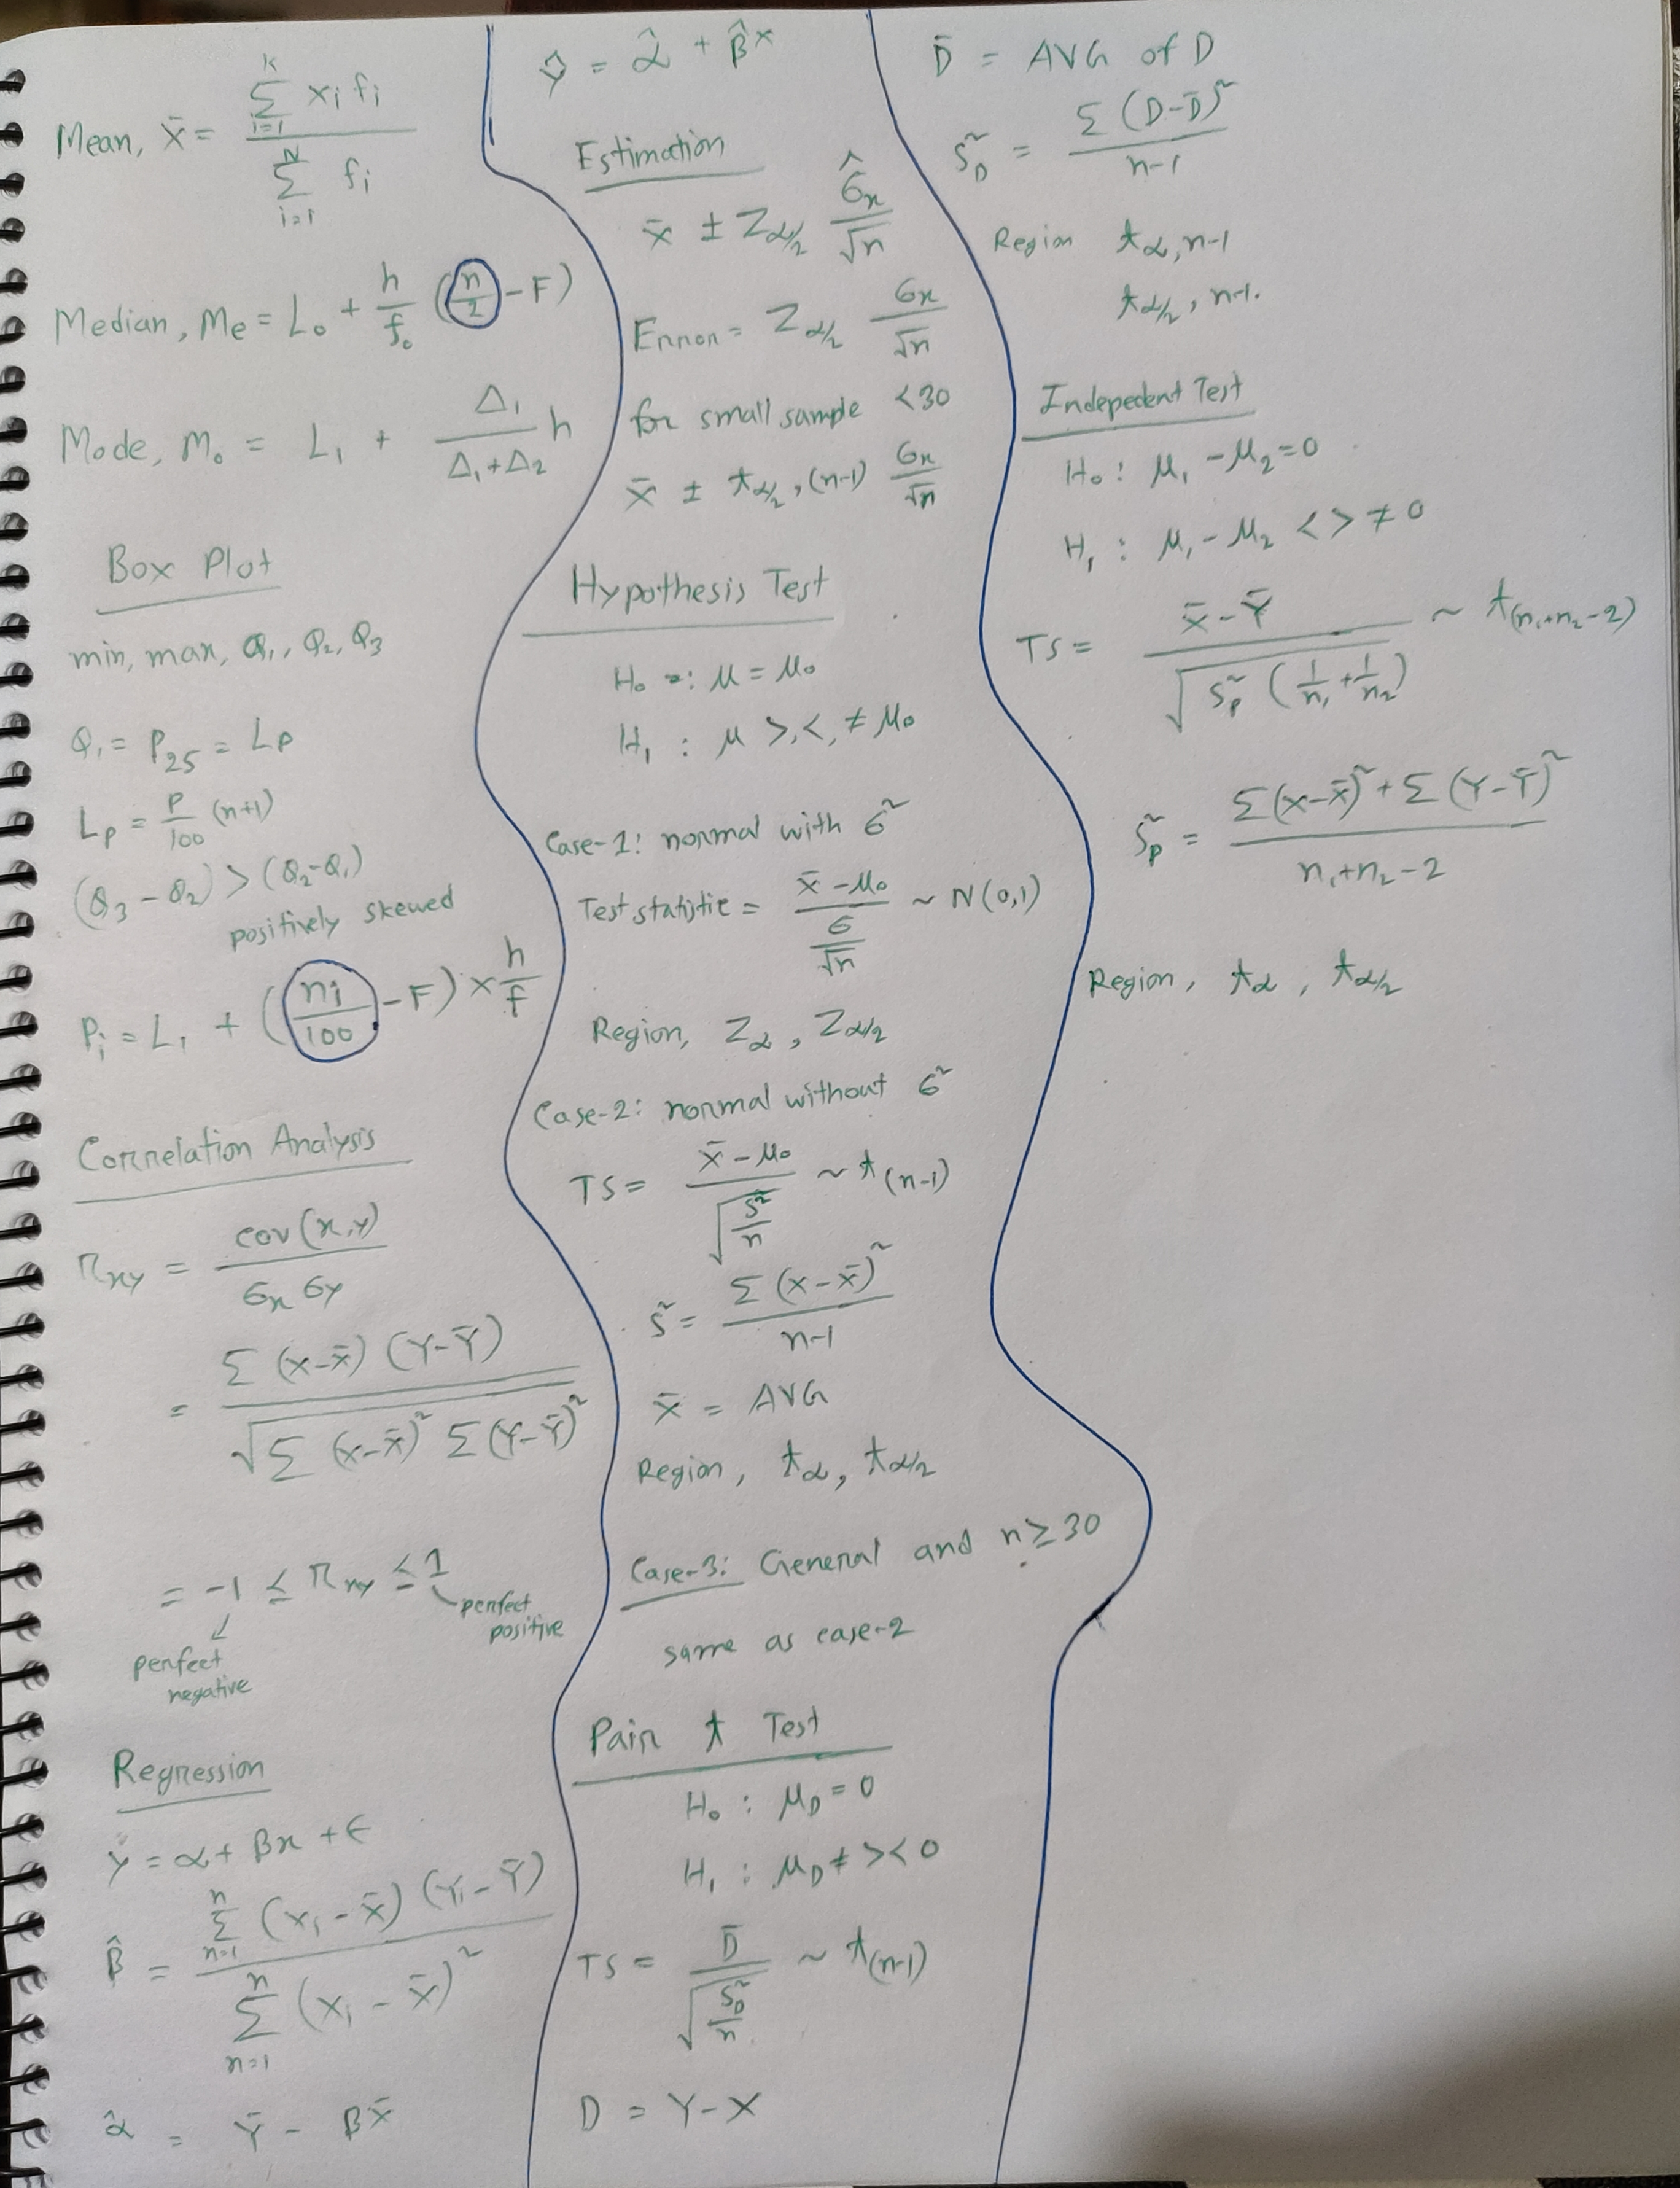 Mean, x̄ = Σ_{i=1}^{k} xᵢ fᵢ / Σ_{i=1}^{N} fᵢ
Median, Me = L₀ + h/f₀ (n/2 - F)
Mode, M₀ = L₁ + Δ₁/(Δ₁+Δ₂) h
Box Plot
min, max, Q₁, Q₂, Q₃
Q₁ = P₂₅ = Lp
Lp = P/100 (n+1)
(Q₃ - Q₂) > (Q₂-Q₁)
positively skewed
Pᵢ = L₁ + (ni/100 - F) × h/f
Correlation Analysis
r_xy = cov(x,y) / σx σy
= Σ(x-x̄)(Y-Ȳ) / √Σ(x-x̄)² Σ(Y-Ȳ)²
= -1 ≤ r_xy ≤ 1
perfect positive
perfect negative
Regression
Y = α + βx + ϵ
β̂ = Σ_{n=1}^{n} (xᵢ - x̄)(Yᵢ - Ȳ) / Σ_{n=1}^{n} (xᵢ - x̄)²
α̂ = Ȳ - βx̄
ŷ = α̂ + β̂x
Estimation
x̄ ± Z_{α/2} σ̂x/√n
Error = Z_{α/2} σx/√n
for small sample <30
x̄ ± t_{α/2}, (n-1) σx/√n
Hypothesis Test
H₀ : μ = μ₀
H₁ : μ >, <, ≠ μ₀
Case-1: normal with σ²
Test statistic = (x̄ - μ₀) / (σ/√n) ~ N(0,1)
Region, Z_α, Z_{α/2}
Case-2: normal without σ²
TS = (x̄ - μ₀) / √(S²/n) ~ t_(n-1)
S² = Σ(x-x̄)² / n-1
x̄ = AVG
Region, t_α, t_{α/2}
Case-3: General and n ≥ 30
same as case-2
Pair t Test
H₀ : μ_D = 0
H₁ : μ_D ≠ > < 0
TS = D̄ / √(S_D²/n) ~ t_(n-1)
D = Y-X
D̄ = AVG of D
S_D² = Σ(D-D̄)² / n-1
Region t_α, n-1
t_{α/2}, n-1.
Indepedent Test
H₀ : μ₁ - μ₂ = 0
H₁ : μ₁ - μ₂ < > ≠ 0
TS = (x̄ - Ȳ) / √(S_p² (1/n₁ + 1/n₂)) ~ t_(n₁+n₂-2)
S_p² = (Σ(x-x̄)² + Σ(Y-Ȳ)²) / (n₁+n₂-2)
Region, t_α, t_{α/2}